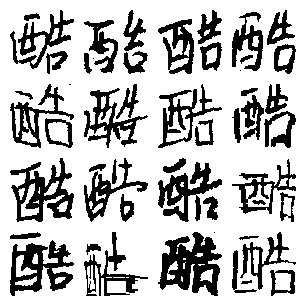 酷酷酷酷
酷酷酷酷
酷酷酷酷
酷酷酷酷